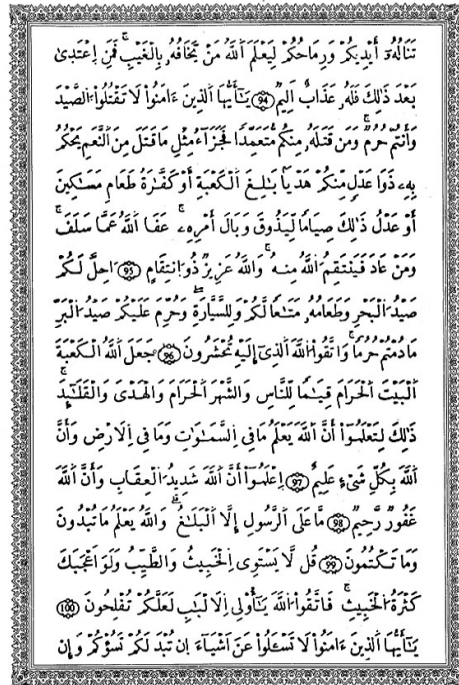 تَنَالُهُۥٓ أَيْدِيكُمْ وَرِمَاحُكُمْ لِيَعْلَمَ اَللَّهُ مَنْ يَّخَافُهُۥ بِالْغَيْبِۚ فَمَنِ اِعْتَدَىٰ
بَعْدَ ذَٰلِكَ فَلَهُۥ عَذَابٌ اَلِيمٌۖ 94 يَٰٓأَيُّهَا اَلذِينَ ءَامَنُوا لَا تَقْتُلُوا اُلصَّيْدَ
وَأَنتُمْ حُرُمٌۚ وَمَن قَتَلَهُۥ مِنكُم مُّتَعَمِّدًا فَجَزَآءُ مِثْلِ مَا قَتَلَ مِنَ اَلنَّعَمِ يَحْكُمُ
بِهِۦ ذَوَا عَدْلٍ مِّنكُمْ هَدْيًا بَٰلِغَ اَلْكَعْبَةِ أَوْ كَفَّٰرَةُ طَعَامِ مَسَٰكِينَ
أَوْ عَدْلُ ذَٰلِكَ صِيَامًا لِّيَذُوقَ وَبَالَ أَمْرِهِۦۚ عَفَا اَللَّهُ عَمَّا سَلَفَۚ
وَمَنْ عَادَ فَيَنتَقِمُ اُللَّهُ مِنْهُۚ وَاللَّهُ عَزِيزٌ ذُو اُنتِقَامٍ 95 اُحِلَّ لَكُمْ
صَيْدُ اُلْبَحْرِ وَطَعَامُهُۥ مَتَٰعًا لَّكُمْ وَلِلسَّيَّارَةِۖ وَحُرِّمَ عَلَيْكُمْ صَيْدُ اُلْبَرِّ
مَا دُمْتُمْ حُرُمًاۚ وَاتَّقُوا اُللَّهَ اَلذِےٓ إِلَيْهِ تُحْشَرُونَۖ 96 جَعَلَ اَللَّهُ اُلْكَعْبَةَ
اَلْبَيْتَ اَلْحَرَامَ قِيَٰمًا لِّلنَّاسِ وَالشَّهْرَ اَلْحَرَامَ وَالْهَدْيَ وَالْقَلَٰٓئِدَۚ
ذَٰلِكَ لِتَعْلَمُوٓا أَنَّ اَللَّهَ يَعْلَمُ مَا فِي اِلسَّمَٰوَٰتِ وَمَا فِي اِلَارْضِ وَأَنَّ
اَللَّهَ بِكُلِّ شَيْءٍ عَلِيمٌۖ 97 اِعْلَمُوٓا أَنَّ اَللَّهَ شَدِيدُ اُلْعِقَابِ وَأَنَّ اَللَّهَ
غَفُورٌ رَّحِيمٌۖ 98 مَّا عَلَى اَلرَّسُولِ إِلَّا اَلْبَلَٰغُۖ وَاللَّهُ يَعْلَمُ مَا تُبْدُونَ
وَمَا تَكْتُمُونَۖ 99 قُل لَّا يَسْتَوِي اِلْخَبِيثُ وَالطَّيِّبُ وَلَوَ اَعْجَبَكَ
كَثْرَةُ اُلْخَبِيثِۚ فَاتَّقُوا اُللَّهَ يَٰٓأُوْلِي اِلَالْبَٰبِ لَعَلَّكُمْ تُفْلِحُونَۖ 100
يَٰٓأَيُّهَا اَلذِينَ ءَامَنُوا لَا تَسْـَٔلُوا عَنَ اَشْيَآءَ اِن تُبْدَ لَكُمْ تَسُؤْكُمْ وَإِن